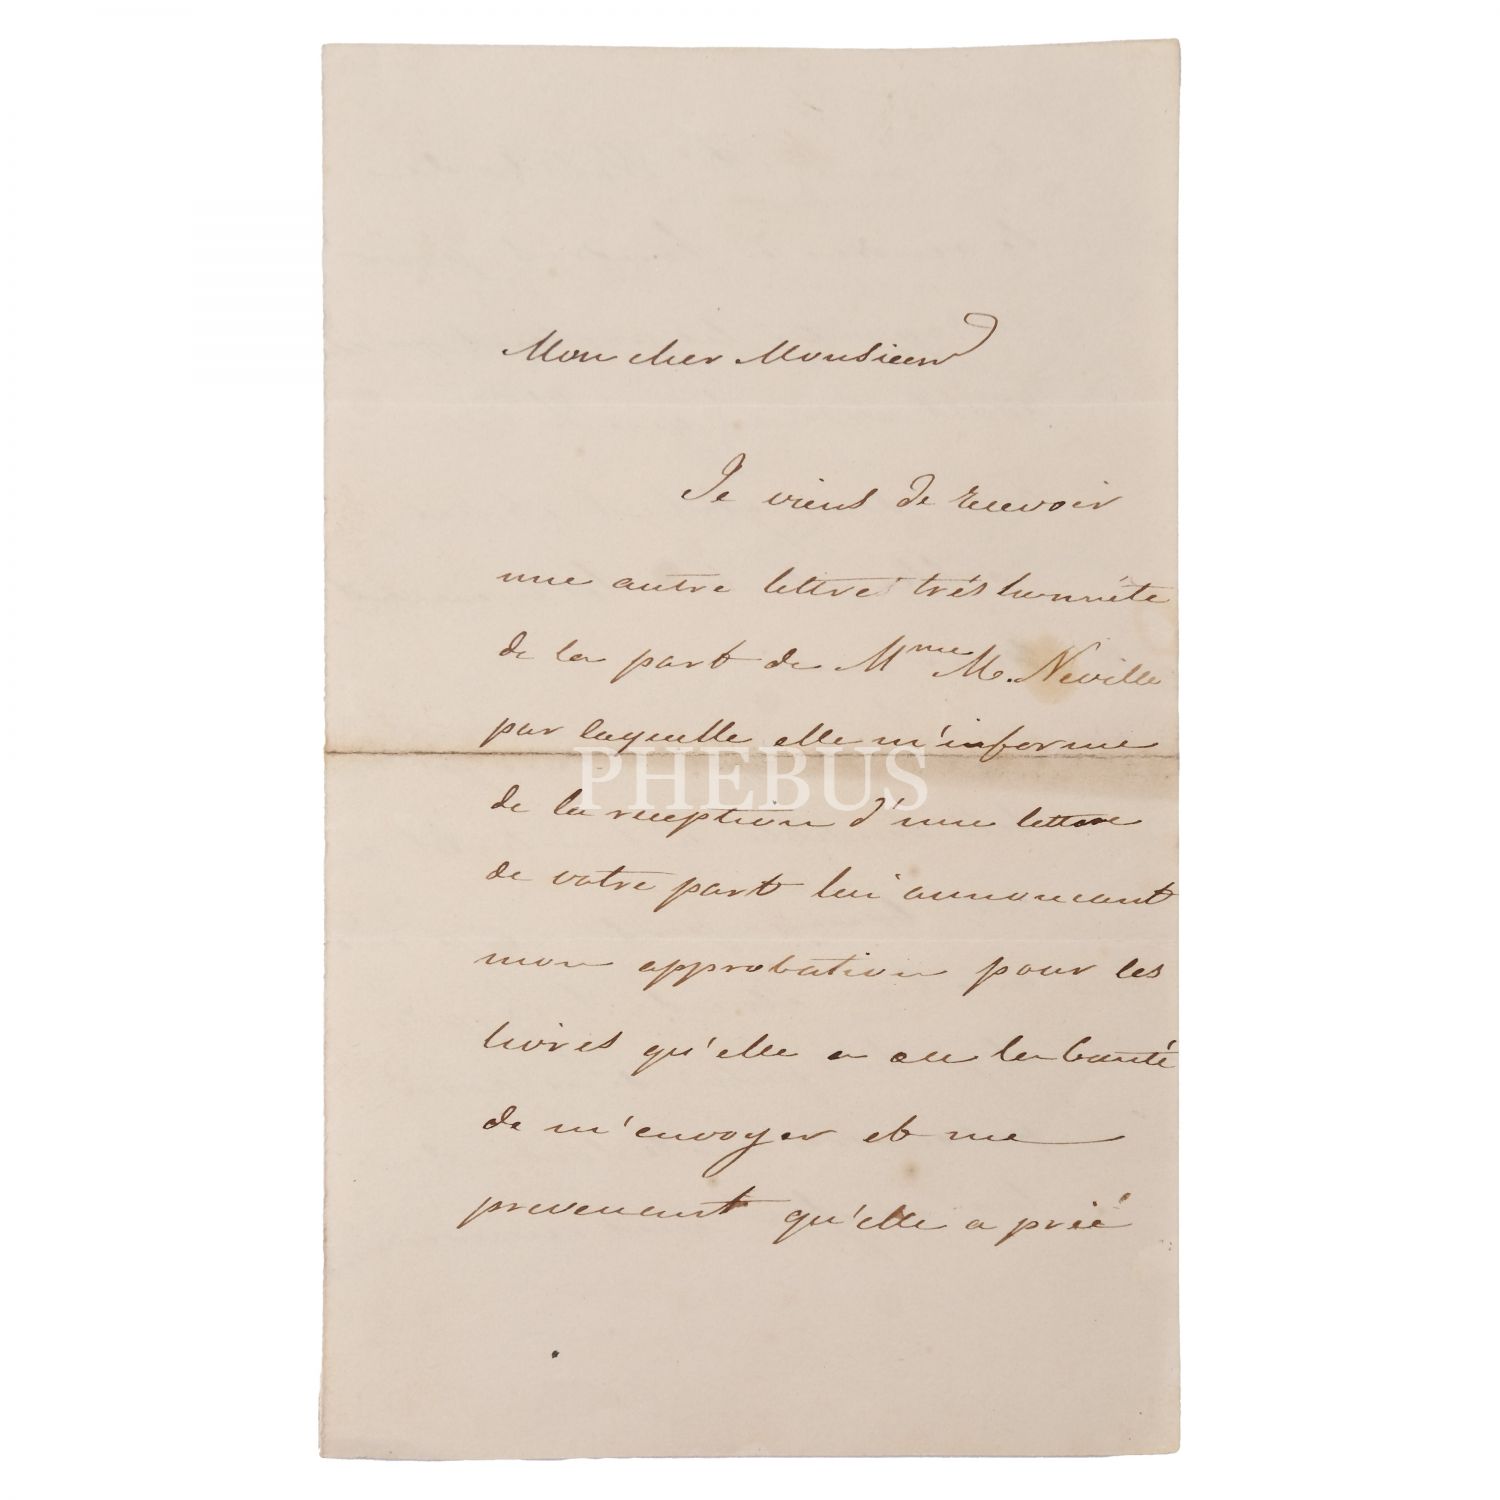 Mon cher Monsieur
Je viens de recevoir
une autre lettre très honnête
de la part de Mme M. Neville
par laquelle elle m'informe
PHEBUS
de la reception d'une lettre
de votre part lui annoncant
mon approbation pour les
livres qu'elle a eu la bonté
de m'envoyer et me
prevenant qu'elle a prié